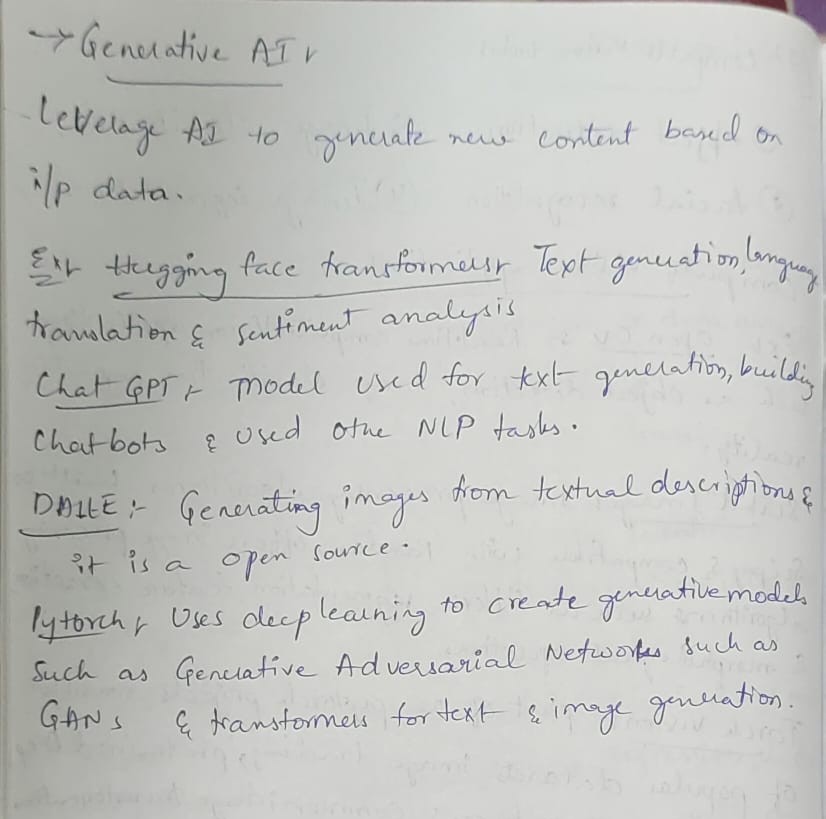 → Generative AI :-
Leverage AI to generate new content based on
i/p data.
Ex :- Hugging face transformers :- Text generation, language
translation & sentiment analysis
Chat GPT :- model used for text generation, building
Chatbots & used othe NLP tasks.
DALLE :- Generating images from textual descriptions &
it is a open source.
Pytorch :- Uses deep learning to create generative models
Such as Generative Adversarial Networks such as
GANs & transformers for text & image generation.